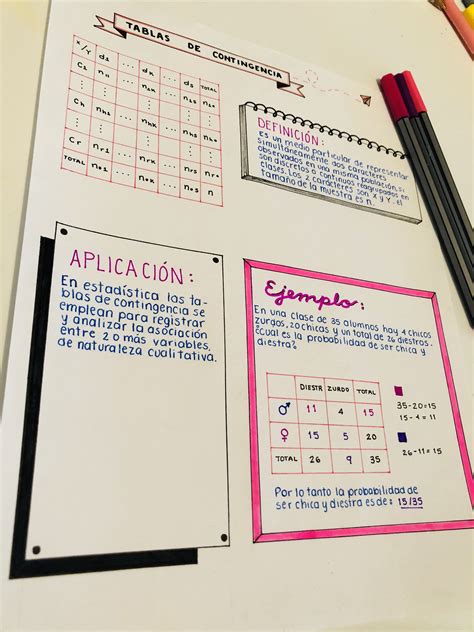 TABLAS DE CONTINGENCIA
X/Y d1 ... dk ... ds TOTAL
C1 n11 ... n1k ... n1s
⋮ ⋮ ⋮ ⋮ ⋮
Ch nh1 ... nhk ... nhs
⋮ ⋮ ⋮ ⋮ ⋮
Cr nr1 ... nrk ... nrs
TOTAL n•1 ... n•k ... n•s n
DEFINICIÓN:
Es un medio particular de representar
simultáneamente dos caracteres
observados en una misma población, si
son discretos o continuos reagrupados en
clases. Los 2 caracteres son x y Y, el
tamaño de la muestra es n.
APLICACIÓN:
En estadística las ta-
blas de contingencia se
emplean para registrar
y analizar la asociación
entre 2 o más variables,
de naturaleza cualitativa.
Ejemplo:
En una clase de 35 alumnos hay 4 chicos
zurdos, 20 chicas y un total de 26 diestros.
¿cuál es la probabilidad de ser chica y
diestra?
DIESTR ZURDO TOTAL
♂ 11 4 15
♀ 15 5 20
TOTAL 26 9 35
35-20=15
15-4=11
26-11=15
Por lo tanto la probabilidad de
ser chica y diestra es de: 15/35